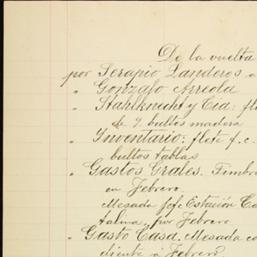 De la vuelta
por Serapio Landeros a
" Gonzalo Arreola
" Stahlknecht y Cia: fle
de 9 bultos madera
" Inventario: flete f.c.
bultos tablas
" Gastos Grales. Timbre
en Febrero
Mesada Jefe Estación Ca
talma y por Febrero
" Gasto Casa. Mesada co
diente a Febrero